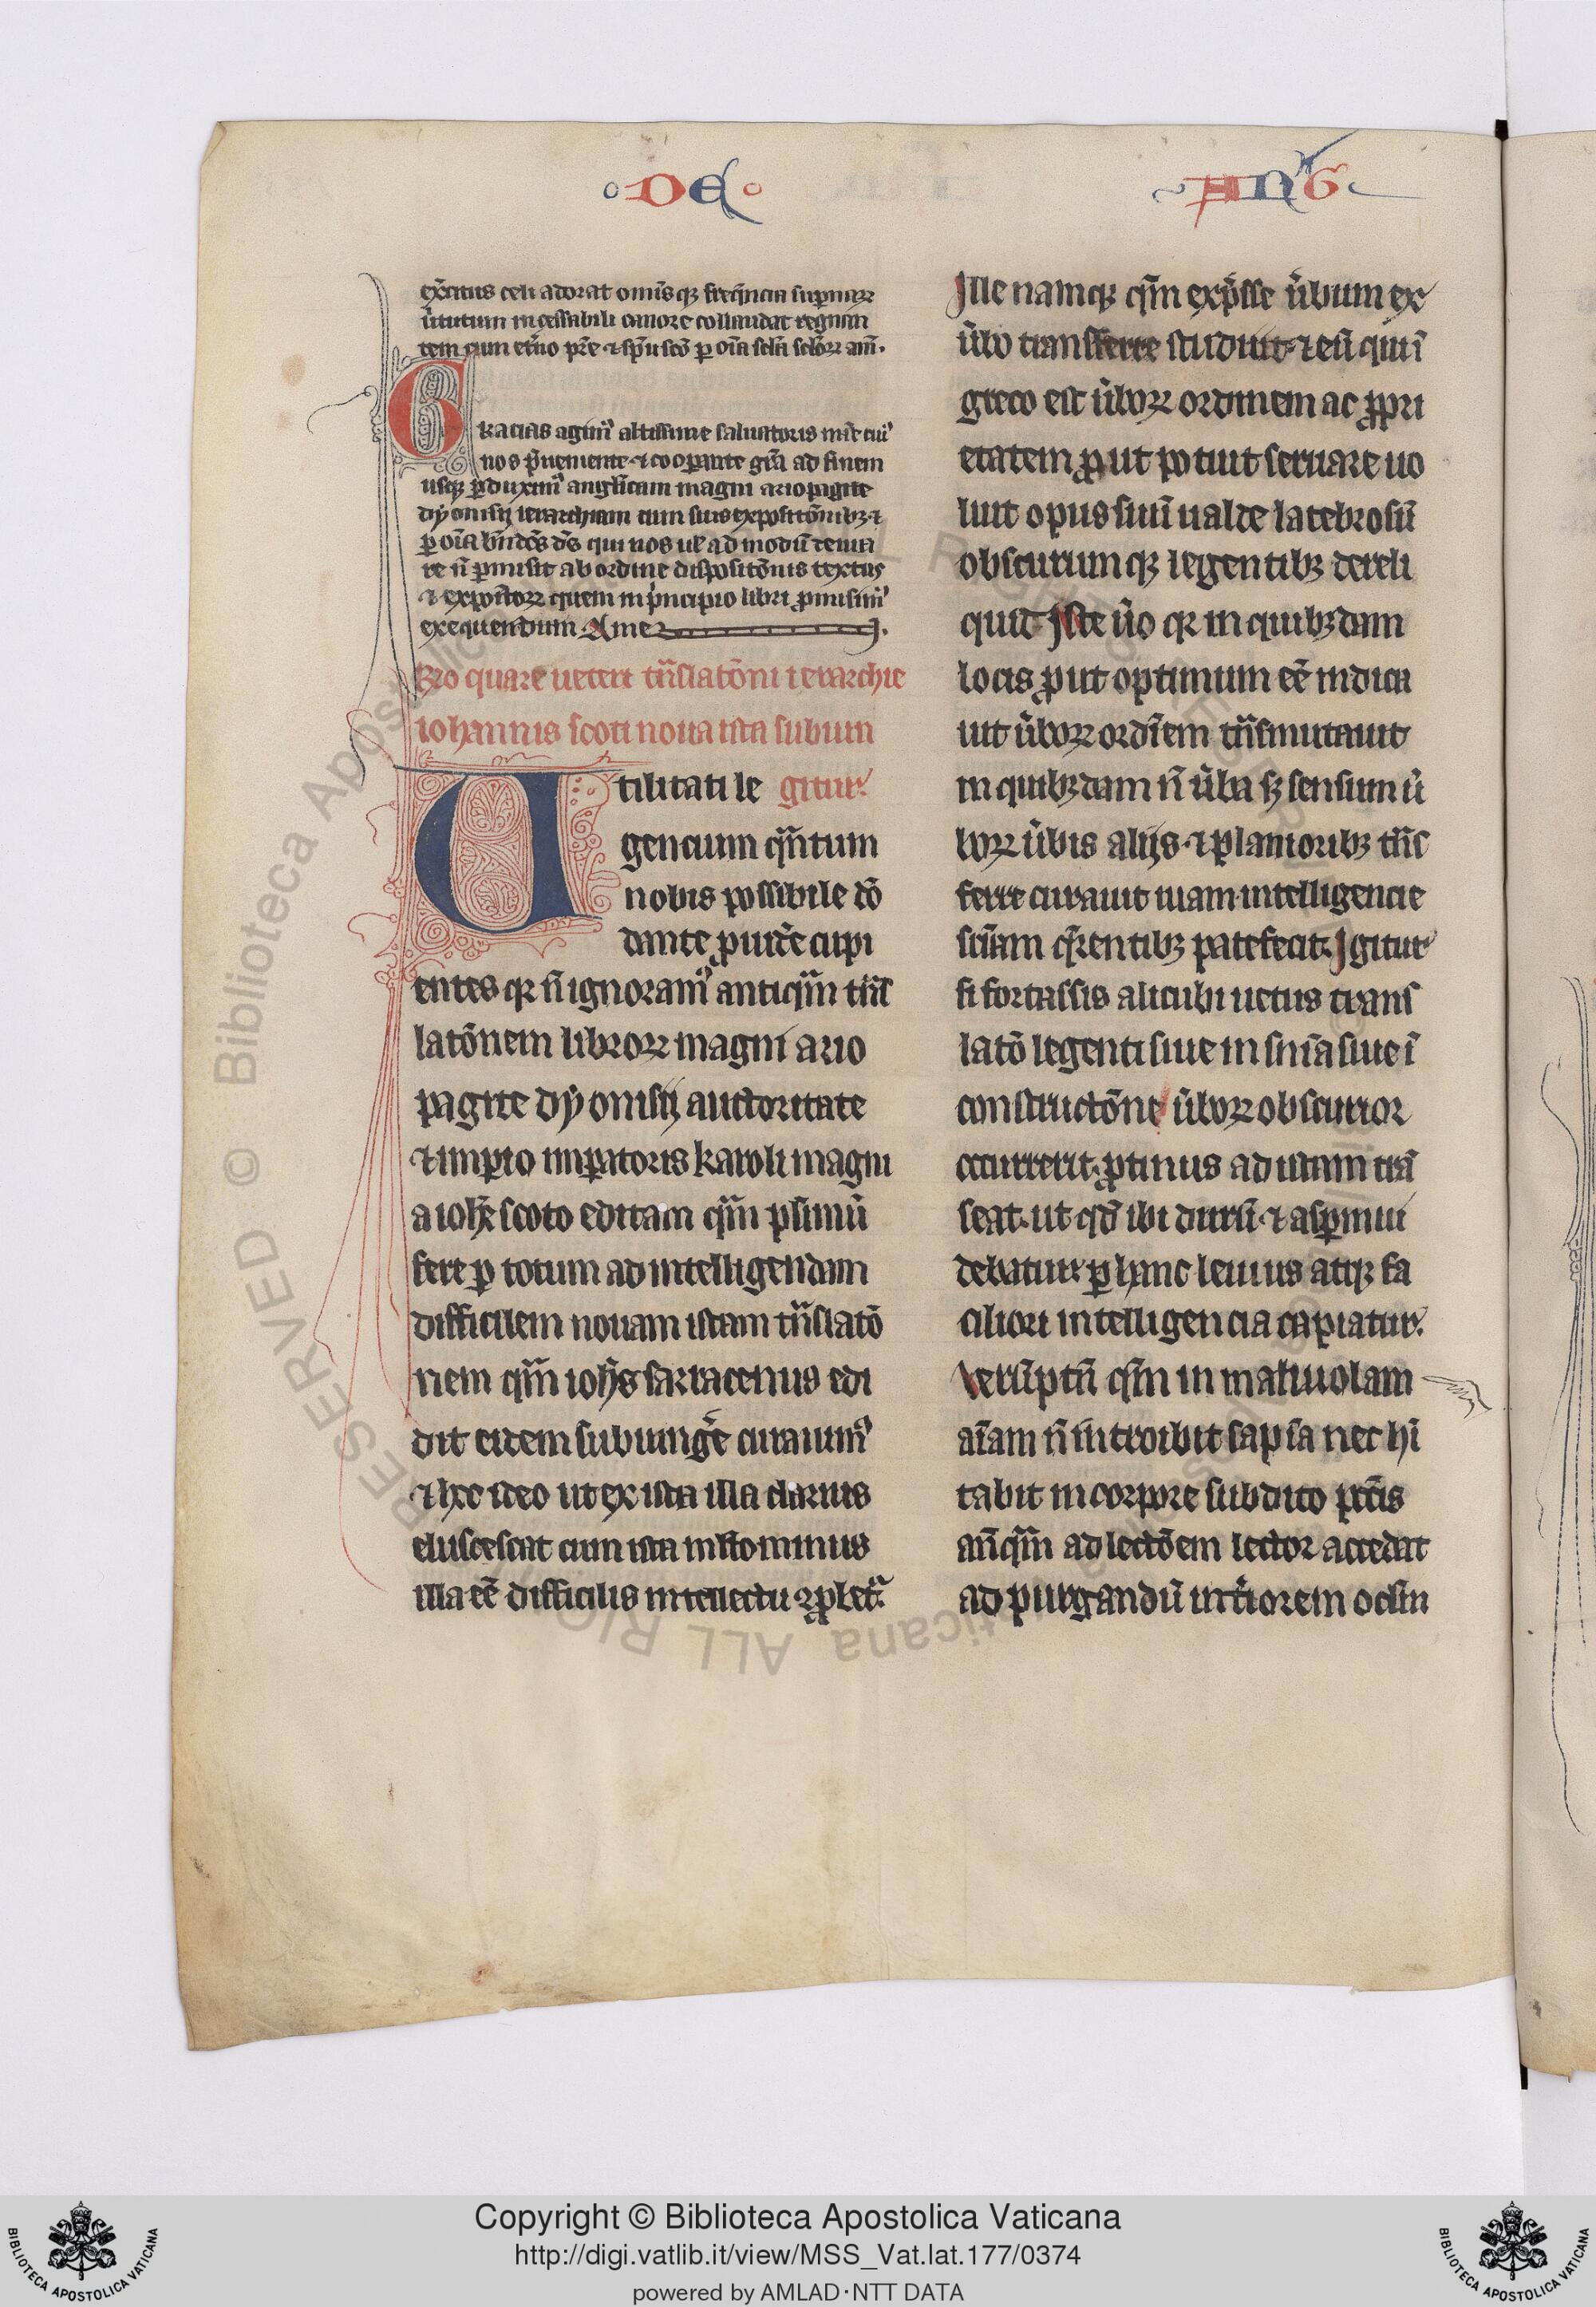 DE ANG
exercitus celi adorat omnisque frequencia supernarum
uirtutum incessabili canore collaudat regnan
tem cum eterno patre et spiritu sancto per omnia secula seculorum amen.
Gracias agimus altissime saluatoris misericordie cuius
nos preueniente et cooperante gratia ad finem
usque perduximus anglicam magni ariopagite
dyonisij ierarchiam cum suis expositionibus et
per omnia benedictus deus qui nos uel ad modum deuia
re non permisit ab ordine dispositionis textus
et expositorum quem in principio libri promisimus
exequendum. Amen.
quare ueteri translationi ierarchie
iohannis scoti noua ista subiun
gitur.
Utilitati le
gencium quantum
nobis possibile deo
dante prouidere cupi
entes quia non ignoramus antiquam trans
lationem librorum magni ario
pagite dyonisij auctoritate
et imperio imperatoris karoli magni
a iohanne scoto editam quam plurimum
fere per totum ad intelligendam
difficilem nouam istam translatio
nem quam iohannes sarracenus edi
dit eidem subiungere curauimus
et hoc ideo ut ex ista illa clarius
elucescat cum ista multo minus
illa esse difficilis intellectu comprobetur.
Ille namque quem expresse uerbum ex
uerbo transferre studuit et eum qui in
greco est uerborum ordinem ac propri
etatem prout potuit seruare uo
luit opus suum ualde latebrosum
obscurumque legentibus dereli
quid Iste uero quia in quibusdam
locis prout optimum esse iudica
uit uerborum ordinem transmutauit
in quibusdam non uerba sed sensum uer
borum uerbis alijs et planioribus trans
ferre curauit uiam intelligencie
sentenciam querentibus patefecit. Igitur
si fortassis alicubi uetus trans
latio legenti siue in sentencia siue in
constructione uerborum obscurior
occurrerit protinus ad istam tran
seat ut quod ibi durum et asperum ui
debatur per hanc leuius atque fa
ciliori intelligencia capiatur.
Verumptamen quoniam in maliuolam
animam non introibit sapientia nec hi
tabit in corpore subdito peccatis
antequam ad lectionem lector accedat
ad purgandum interiorem oculum
Copyright © Biblioteca Apostolica Vaticana
http://digi.vatlib.it/view/MSS_Vat.lat.177/0374
powered by AMLAD·NTT DATA